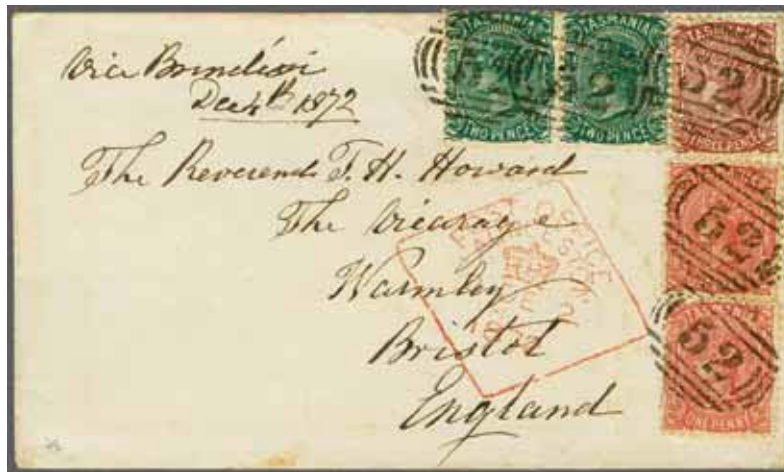 Via Brindisi
Dec 4th 1872
The Reverend T. H. Howard
The Vicarage
Warmley
Bristol
England
TASMANIA
TWO PENCE
52
TASMANIA
TWO PENCE
52
TASMANIA
THREE PENCE
52
52
52
ONE PENNY
OFFICE